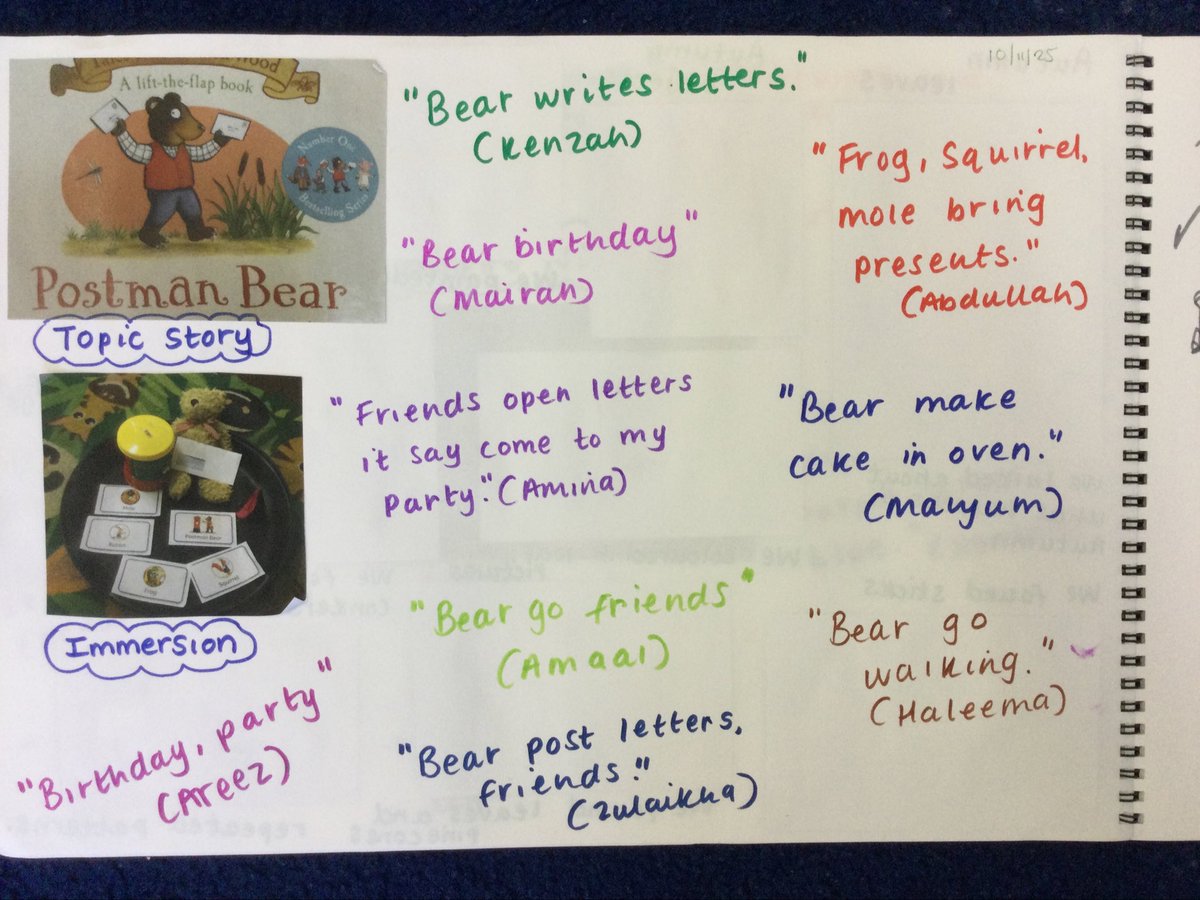 10/11/25
A lift-the-flap book
Number One
Bestselling Series
Postman Bear
Topic story
"Bear writes letters."
(Kenzah)
"Frog, squirrel,
mole bring
presents."
(Abdullah)
"Bear birthday"
(Mairah)
"Friends open letters
it say come to my
party." (Amina)
"Bear make
cake in oven."
(Maryum)
Postman Bear
Frog
Squirrel
Immersion
"Bear go friends"
(Amaal)
"Bear go
walking."
(Haleema)
"Birthday, party"
(Areez)
"Bear post letters,
friends."
(Zulaikha)